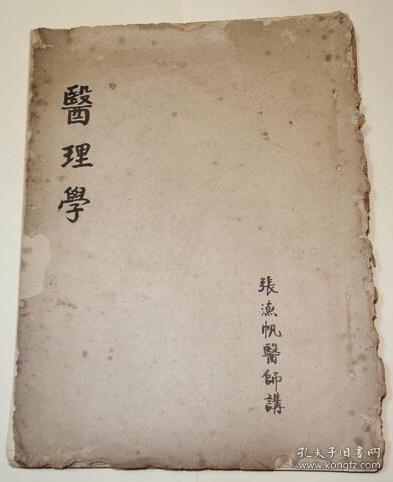 醫理學
張漁帆醫師講
孔夫子旧书网
www.kongfz.com